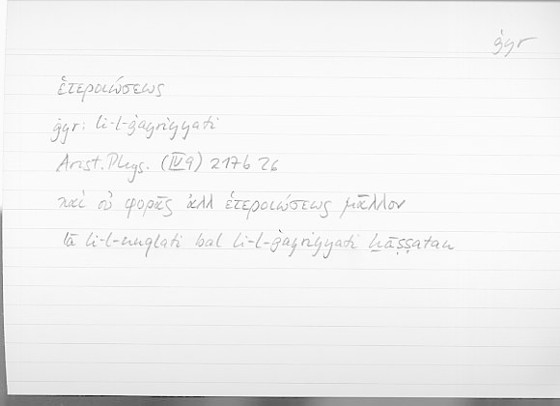 ġyr
ἑτεροιώσεως
ġyr: li-l-ġayriyyati
Arist. Phys. (IV 9) 217b 26
καὶ οὐ φορᾶς ἀλλ ἑτεροιώσεως μᾶλλον
lā li-l-nuqlati bal li-l-ġayriyyati ḫāṣṣatan